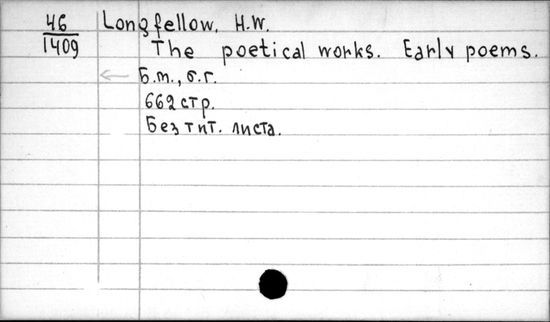 46 Longfellow, H.W.
1409 The poetical works. Early poems.
Б.м., б.г.
662 стр.
Без тит. листа.